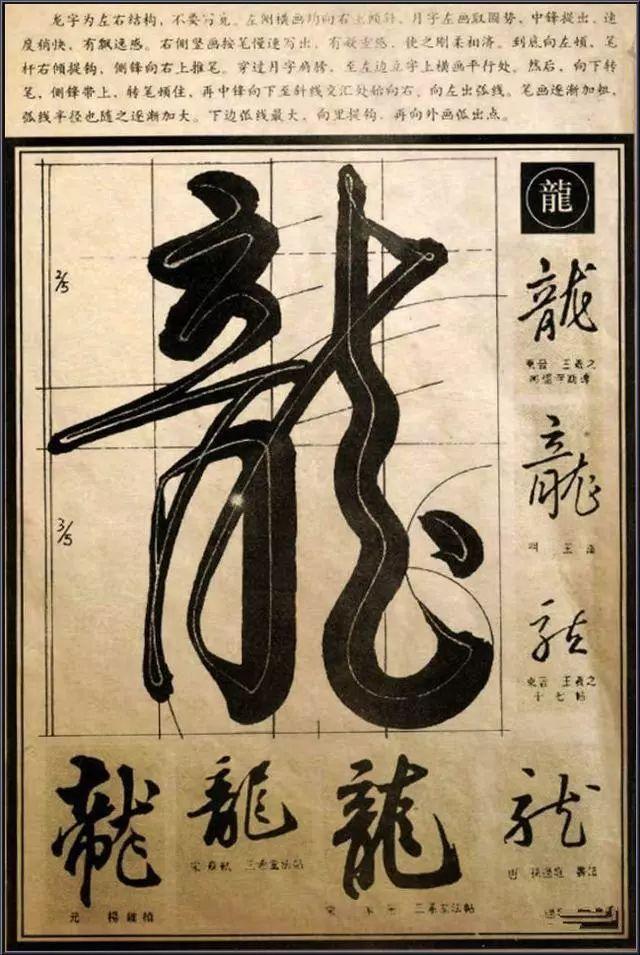 龙字为左右结构，不要写宽。左侧横画均向右上倾斜，月字左画取圆势，中锋提出，速
度稍快、有飘逸感。右侧竖画按笔慢速写出，有凝重感，使之刚柔相济。到底向左顿，笔
杆右倾提钩，侧锋向右上推笔。穿过月字肩膀，至左边立字上横画平行处。然后，向下转
笔、侧锋带上，转笔顿住、再中锋向下至斜线交汇处始向右、向左出弧线。笔画逐渐加粗，
弧线半径也随之逐渐加大。下边弧线最大，向里提钩，再向外画弧出点。
龍
2/5
3/5
龍
龍
東晋 王羲之
龍
明 王
龍
東晋 王羲之
十七帖
龍
元 楊維楨
龍
宋 三希堂法帖
龍
宋 三希堂法帖
龍
唐 孫過庭 書譜